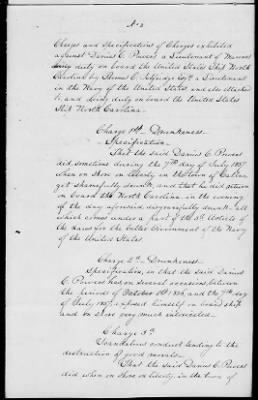 A-2
Charges and Specifications of Charges exhibited
against Darius C. Powers a Lieutenant of Marines
doing duty on board the United States Ship North
Carolina by Thomas O. Selfridge Esqr. a Lieutenant
in the Navy of the United States and also attached
to and doing duty on board the United States
Ship North Carolina.
Charge 1st. Drunkeness.
Specification.
That the said Darius C. Powers
did sometime during the 7th day of July 1837
when on shore on liberty in the town of Callao
get shamefully drunk, and that he did return
on board the North Carolina, in the evening
of the day aforesaid disgracefully drunk, all
which comes under a part of the 3d. Article of
the Laws for the better Government of the Navy
of the United States.
Charge 2d. Drunkeness.
Specification, in that the said Darius
C. Powers has on several occasions, between
the periods of October 1836, and the 7th day
of July 1837, exposed himself on board ship
and on shore very much intoxicated.
Charge 3d.
Scandalous conduct tending to the
destruction of good morals.
That the said Darius C. Powers
did when on shore on liberty, in the town of